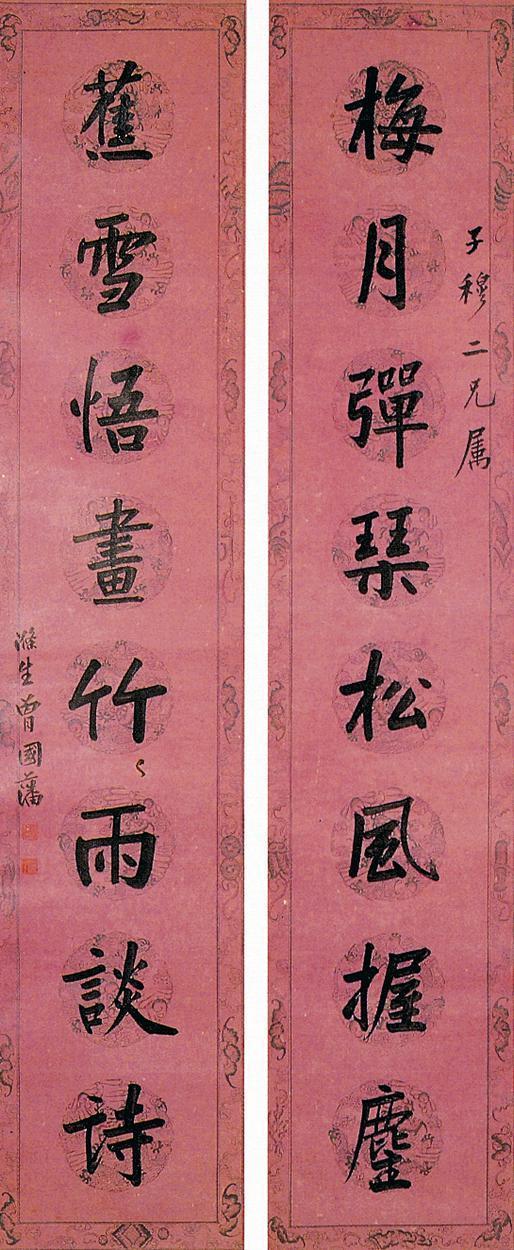 子穆二兄属
梅月彈琹松風握麈
蕉雪悟畫竹雨談詩
滌生曾國藩